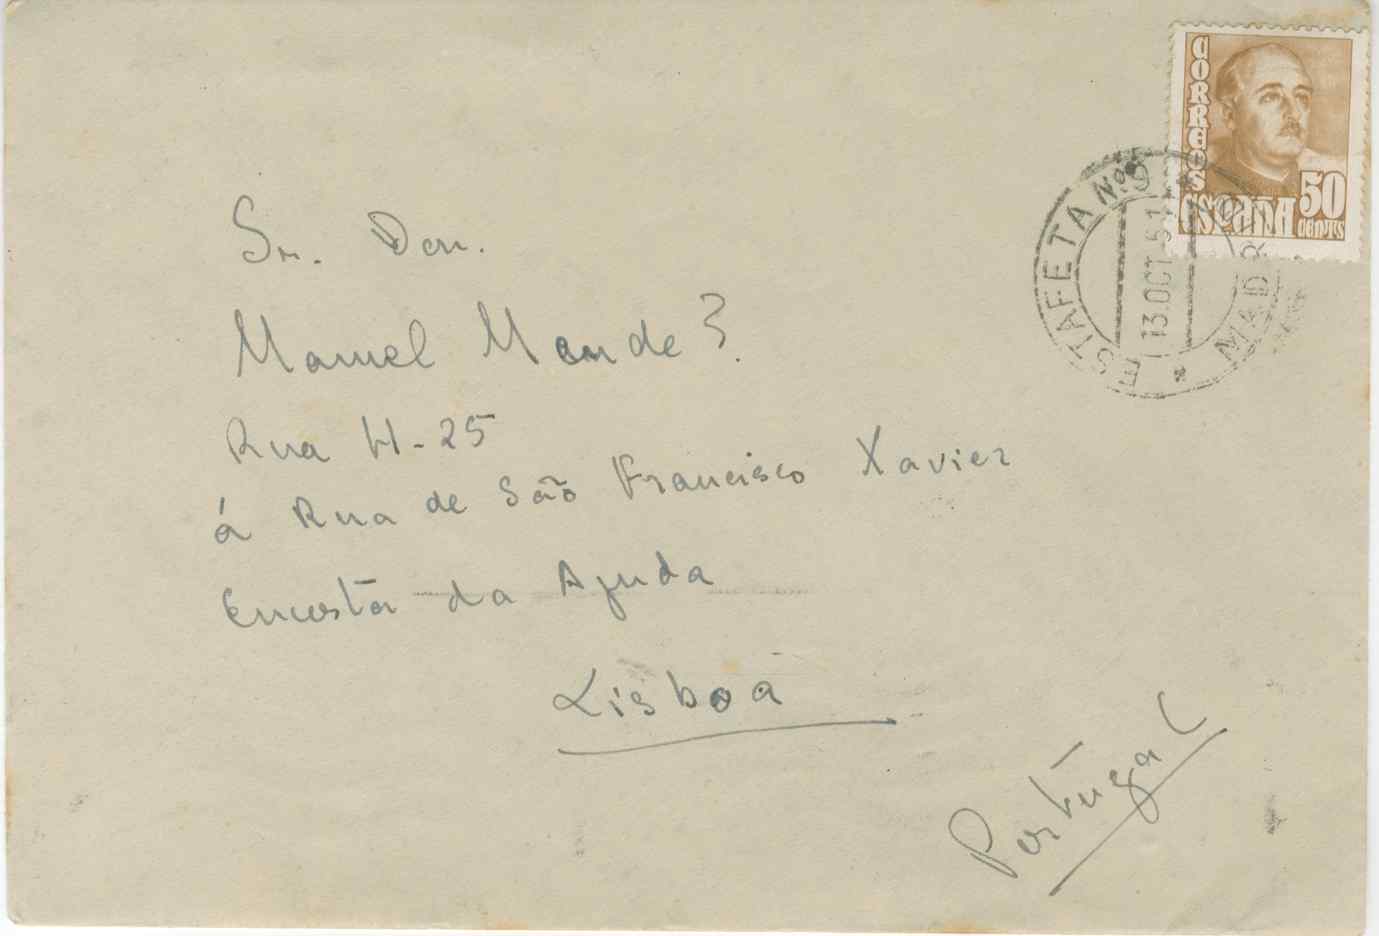 CORREOS
ESPAÑA
50
CENTS
ESTAFETA Nº 9
MADRID
13.OCT.51
Sr. Don.
Manuel Mendez.
Rua H-25
á Rua de São Francisco Xavier
Encosta da Ajuda
Lisboa
Portugal